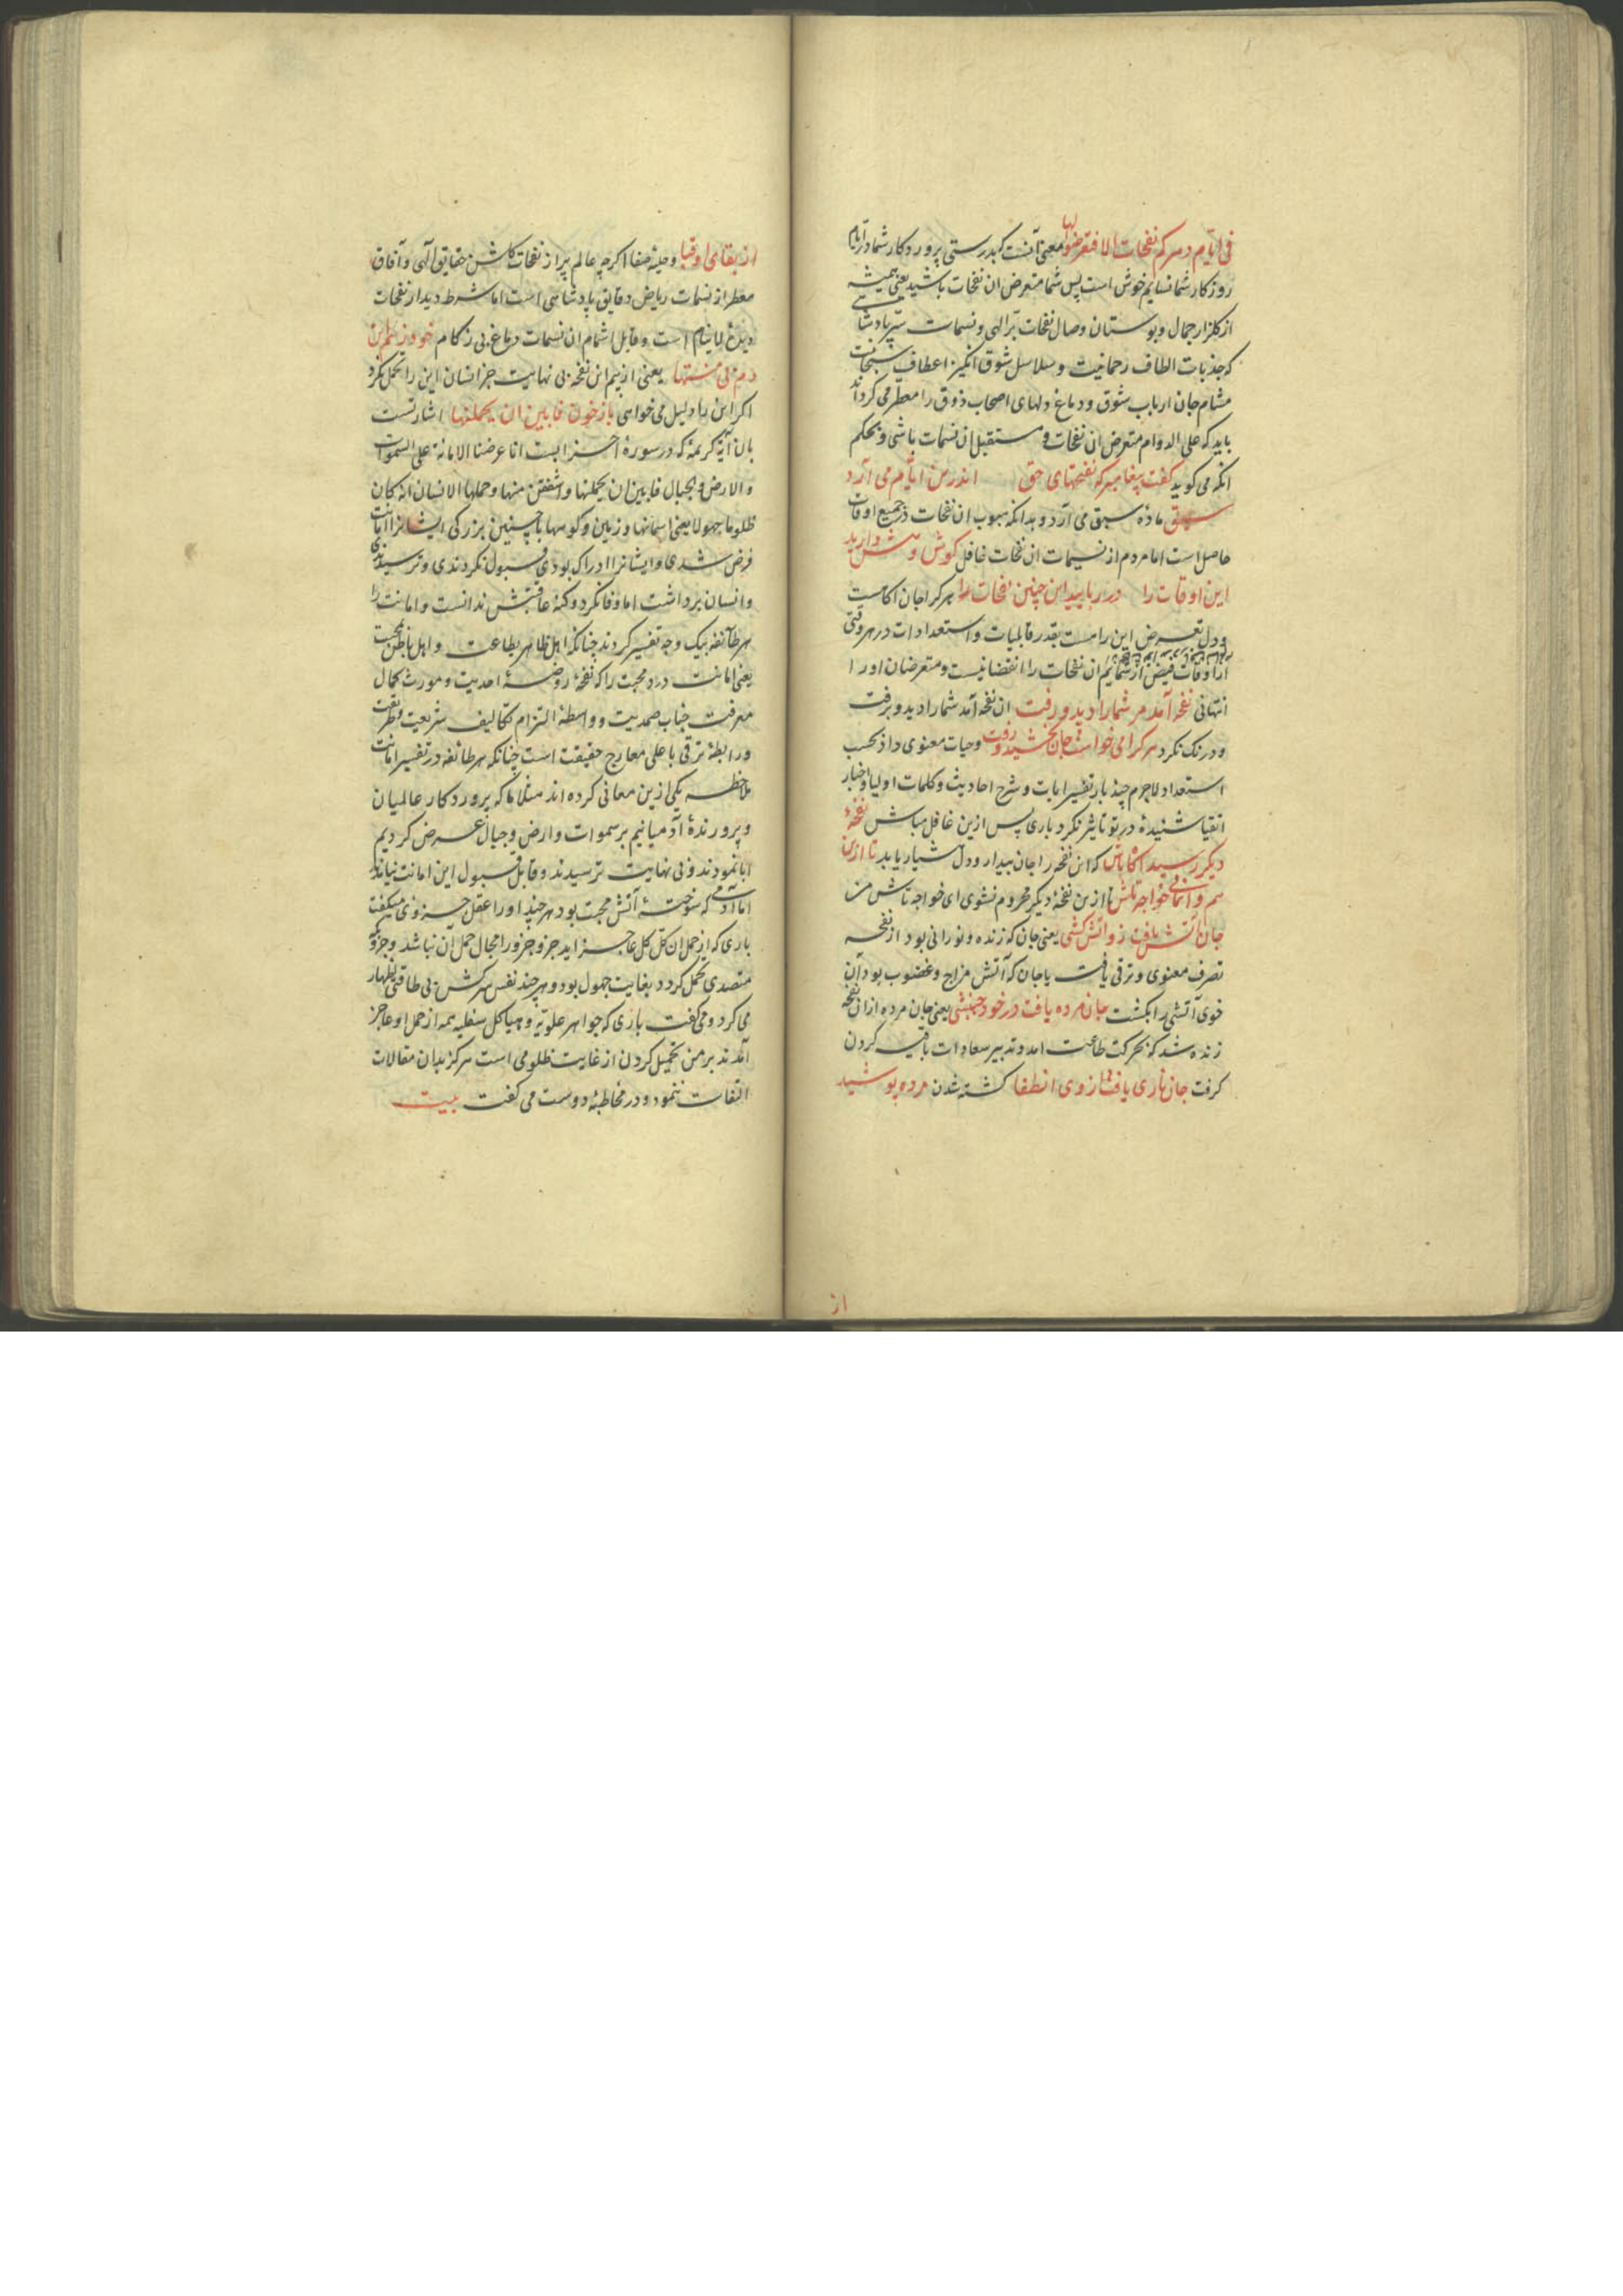 فی ایام دهرکم نفحات الا فتعرضوا لها معنی آنست که بدرستی پروردکار شما در ایام
روزکار شما نسایم خوش است پس شما متعرض ان نفحات باشید یعنی همیشه
از کلزار جمال و بوستان وصال نفحات برّ الهی و نسمات سرّ پادشاهی
که جذبات الطاف رحمانیت و سلاسل شوق انکیز اعطاف
مشام جان ارباب شوق و دماغ دلهای اصحاب ذوق را معطر می کرداند
باید که علی الدوام متعرض ان نفحات و مستقبل ان نسمات باشی و بحکم
انکه می کوید کفت پیغامبر که نفحتهای حق اندرین ایام می آرد
سبق ماده سبق می آرد و بدانکه هبوب ان نفحات در جمیع اوقات
حاصل است اما مردم از نسیمات ان نفحات غافل کوش و هش دارید
این اوقات را در ربایید این چنین نفحات را هر کرا جان آکاهست
و دل تعرض این را مست بقدر قابلیات و استعدادات در هر وقتی
از اوقات فیض از شمایم ان نفحات را انقضا نیست و متعرضان او را
انتهائی نفحه آمد مر شما را دید و رفت ان نفحه آمد شما را دید و برفت
و درنک نکرد هر کرا می خواست جان بخشید و رفت و حیات معنوی داد بحسب
استعداد لاجرم چند بار تفسیر ایات و شرح احادیث و کلمات اولیا و اخبار
اتقیا شنیدهٔ در تو تاثیر نکرد باری پس ازین غافل مباش نفحهٔ
دیکر رسید آکاه باش که این نفحه را جان بیدار و دل هشیار یابد تا ازین
هم وا نمانی خواجه تاش تا ازین نفحهٔ دیکر محروم نشوی ای خواجه تاش من
جان آتش یافت زو آتش کشی یعنی جان که زنده و نورانی بود از نفحه
تصرف معنوی و ترقی یافت یا جان که آتش مزاج و غضوب بود آن
خوی آتشی را بکشت جان مرده یافت در خود جنبشی یعنی جان مرده از ان نفحه
زنده شد که بحرکت طاعت امد و تدبیر سعادات باقیه کردن
کرفت جان ناری یافت از وی انطفا کشته شدن مرده پوشید
از
از بقای او قبا و حیّهٔ صفا اکرچه عالم پر از نفحات کلشن حقایق الهی و آفاق
معطر از نسمات ریاض دقایق پادشاهی است اما شرط دیدار نفحات
دیدهٔ لا ینام است و قابل اشمام ان نسمات دماغ بی زکام خود ز بیم این
دم بی منتها یعنی از بیم این نفحه بی نهایت جز انسان این را تحمل نکرد
اکر این را دلیل می خواهی باز خوان فابین ان یحملنها اشارتست
بان آیهٔ کریمه که در سورهٔ احزابست انا عرضنا الامانة علی السموات
والارض والجبال فابین ان یحملنها واشفقن منها وحملها الانسان انه کان
ظلوما جهولا یعنی اسمانها و زمین و کوهها با چنین بزرکی ایشانرا امانت
عرض شدی و ایشانرا ادراک بودی قبول نکردندی و ترسیدندی
و انسان برداشت اما وفا نکرد و کنه عاقبتش ندانست و امانت را
هر طائفه بیک وجه تفسیر کردند چنانکه اهل ظاهر بطاعت و اهل باطن بمحبت
یعنی امانت درد محبت را که نفحهٔ روضهٔ احدیت و مورث کمال
معرفت جناب صمدیت و واسطهٔ التزام تکالیف شریعت و طریقت
و رابطهٔ ترقی باعلی معارج حقیقت است چنانکه هر طائفه در تفسیر امانت
ملاحظه یکی ازین معانی کرده اند مثلا ما که پروردکار عالمیان
و پرورندهٔ آدمیانیم بر سموات و ارض و جبال عرض کردیم
ابا نمودند و بی نهایت ترسیدند و قابل قبول این امانت نیامدند
اما آدمی که سوختهٔ آتش محبت بود هر چند او را عقل جزوی میکفت
باری که از حمل ان کل کل عاجز اید جزو جزو را مجال حمل آن نباشد و جزوی که
متصدی تحمل کردد بغایت جهول بود و هر چند نفس سرکش بی طاقتی اظهار
می کرد و می کفت باری که جواهر علویّه و هیاکل سفلیه همه از حمل او عاجز
آمدند بر من تحمیل کردن از غایت ظلومی است هرکز بدان مقالات
التفات ننمود و در مخاطبهٔ دوست می کفت بیت